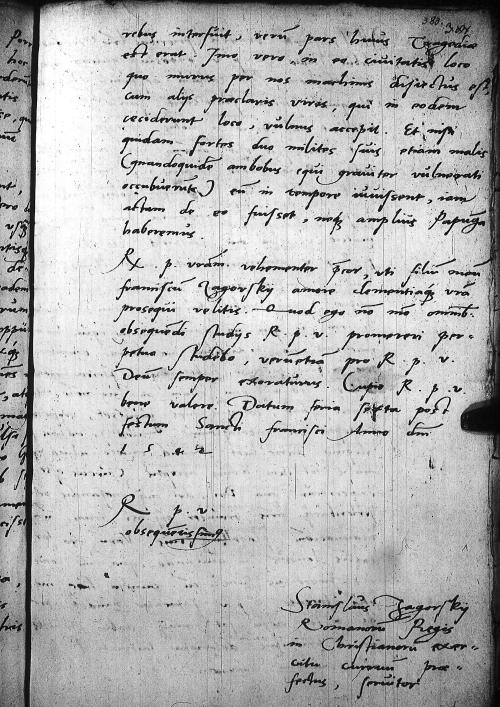 383. 387
rebus interfuit, verũ pars huius Tragediæ
est erat. Imo vero in eo ciuitatis loco
quo murus per nos machinis disiectus est,
cum alijs præclaris viris, qui in eodem
ceciderunt loco, vulnus accepit. Et nisi
quidam fortes duo milites suis etiam malis
(quandoquidẽ ambobus equi grauiter vulnerati
occubuerũt) eũ in tempore iuuissent, iam
actum de eo fuisset, neq3 amplius Papuga
haberemus.
R. p. vram vehementer p̃cor, vti filiũ meũ
franciscũ Zagorsky amore clementiaq3 vrã
prosequi velitis. Quod ego nõ mõ omnib.
obsequẽdi studijs R. p. v. promereri per-
petuo studebo, verũetiã pro R. p. v.
Deũ semper exoraturus. Cupio R. p. v.
bene valere. Datum feria sexta post
festum Sancti francisci Anno dñi
1 5 4 2
R p. v
obsequẽtissimq
Stanislaus Zagorsky
Romanorũ Regis
in Christianorũ exer-
citu curruũ præ-
fectus, seruitor